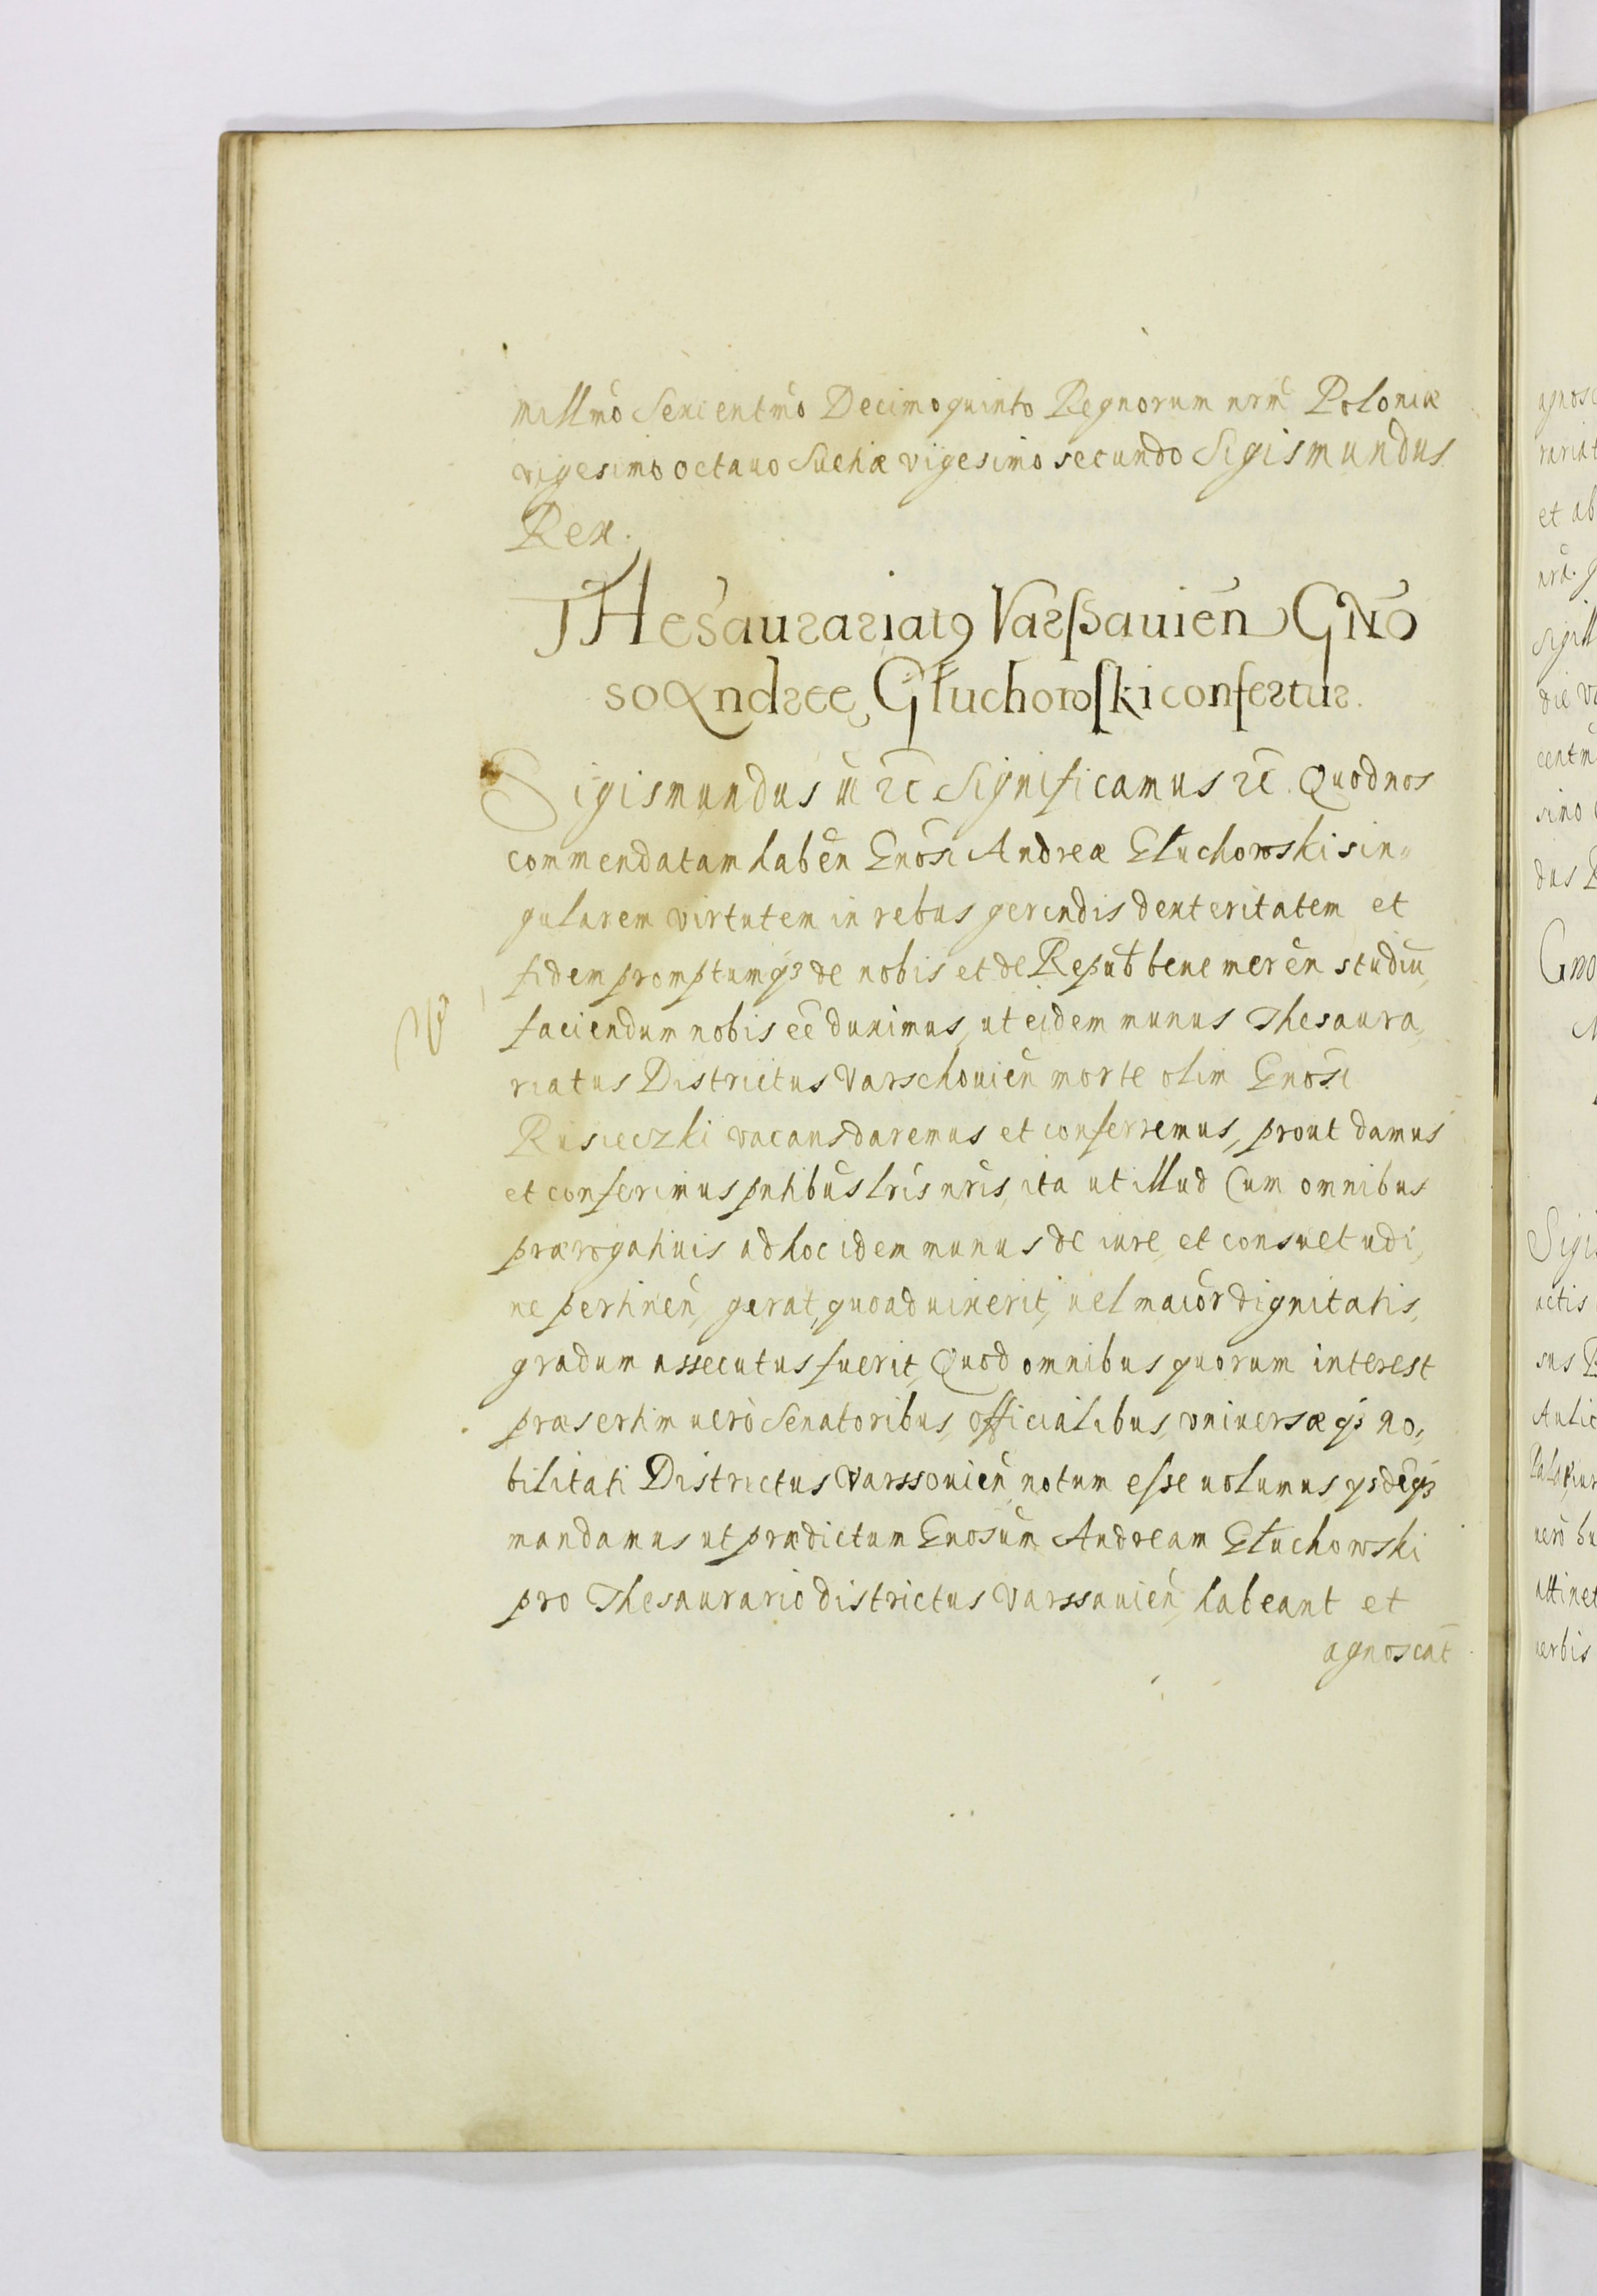 millmo Sexcentmo Decimoquinto Regnorum nrm̄ Poloniæ
vigesimo octauo Suetiæ vigesimo secundo Sigismundus
Rex.
THesaurariatꝯ Varsßauien̄ GNō
so Andreę Głuchowſki confertur.
Sigismundus iii ꝛc̄ Significamus ꝛc̄. Quod nos
commendatam habēn Gnōsi Andreæ Głuchowski sin„
gularem virtutem in rebus gerendis dexteritatem et
fidem promptumqꝫ de nobis et de Repub̄ bene merēn studiū,
faciendum nobis ēē duximus, ut eidem munus Thesaura,
riatus Districtus Varschouien̄ morte olim Gnōsi
Rusieczki vacans daremus et conferremus, prout damus
et conferimus pn̄tibus lrīs nrīs, ita ut illud Cum omnibus
prærogatiuis ad hoc idem munus de iure, et consuetudi,
ne pertinēn, gerat, quoad uixerit, uel maiōr dignitatis,
gradum assecutus fuerit, Quod omnibus quorum interest
præsertim uerò Senatoribus, officialibus, vniuersæqꝫ no„
bilitati Districtus Varssouien̄ notum eſse uolumus
mandamus ut prædictum Gnosūm Andream Głuchowski
pro Thesaurario districtus Varssauien̄, habeant et
agnoscāt
agnosc
rariat
et ab
nrā.
sigill
die
centm
simo
dus
Gno
Sigi
actis
sus
Aulic
uerò
attinet
uerbis